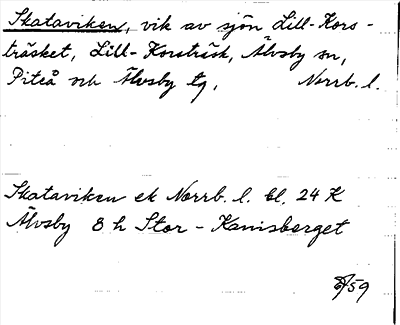 Skataviken, vik av sjön Lill-Kors-
träsket, Lill-Korsträsk, Älvsby sn,
Piteå och Älvsby tg, Norrb. l.
Skataviken ek Norrb. l. bl. 24 K
Älvsby 8 h Stor-Kanisberget
/59